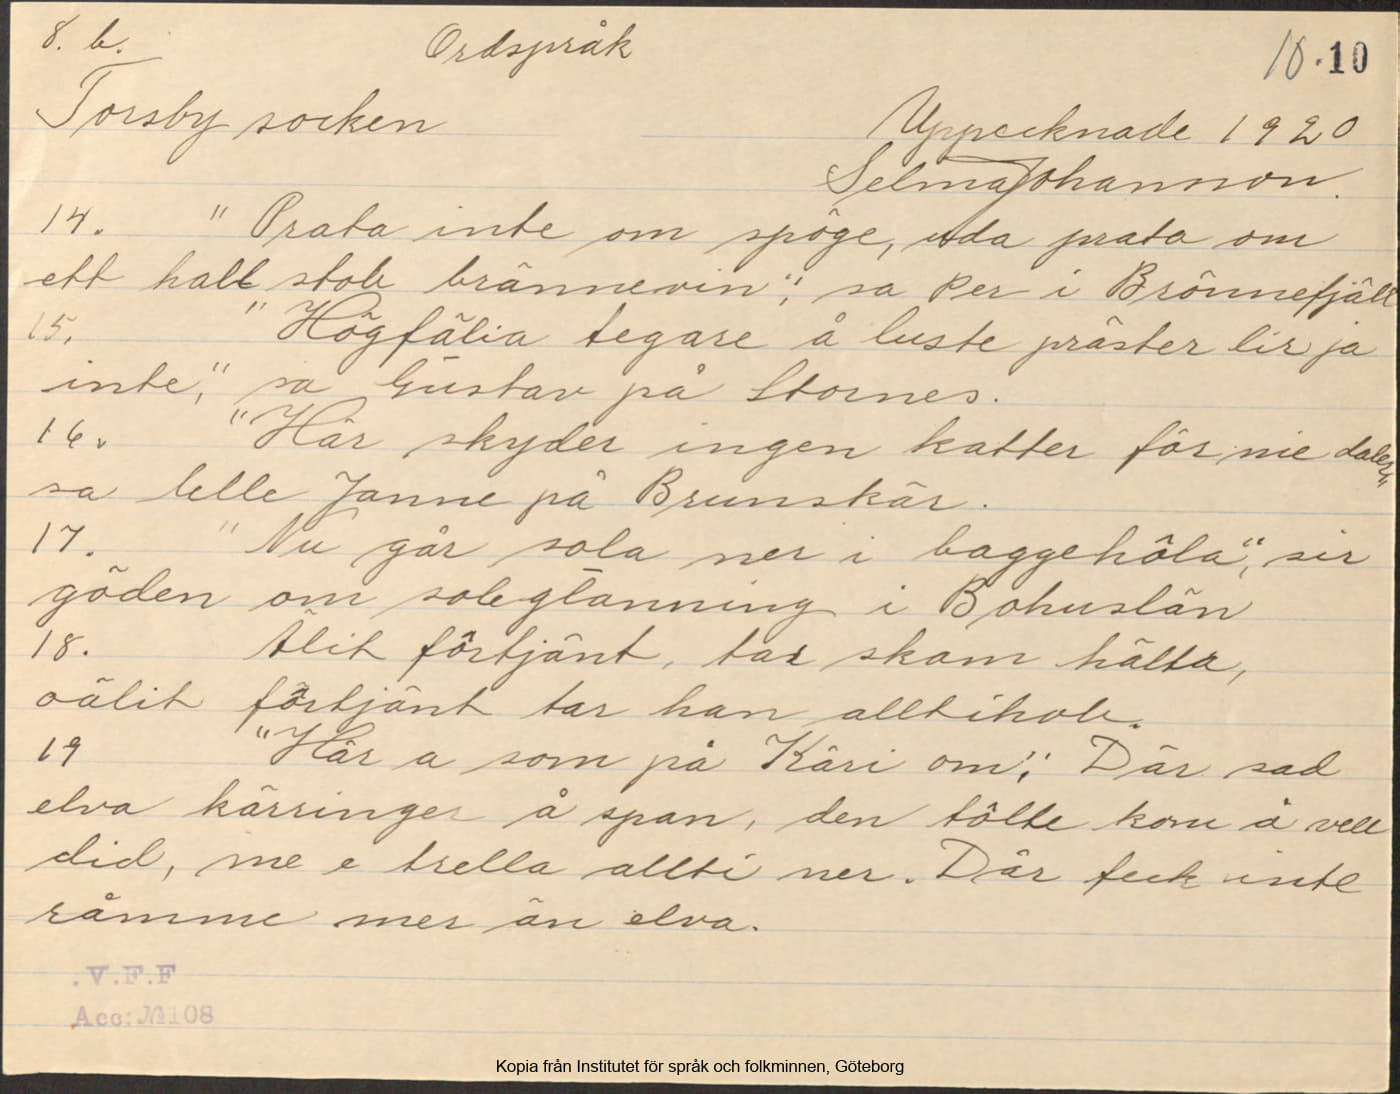 8. b. Ordspråk 10. 10
Torsby socken Uppecknade 1920
Selma Johansson.
14. "Prata inte om spöge, uda prata om
ett halt stob brännevin", sa Per i Brönnefjäll
15. "Högfälia tegare å luste präster lir ja
inte," sa Gustav på Stornes.
16. "Här skyder ingen katter för nie daler"
sa lelle Janne på Brunskär.
17. "Nu går sola ner i baggehôla", sir
göden om soleglänning i Bohuslän
18. Älit fôrtjänt, tar skam hälta,
oälit förtjänt tar han alltihob.
19 "Här a som på Käri om", Där sad
elva kärringer å span, den tôlte kom å vell
did, me e trella allti ner. Där feck inte
råmme mer än elva.
.V.F.F
Acc: № 108
Kopia från Institutet för språk och folkminnen, Göteborg